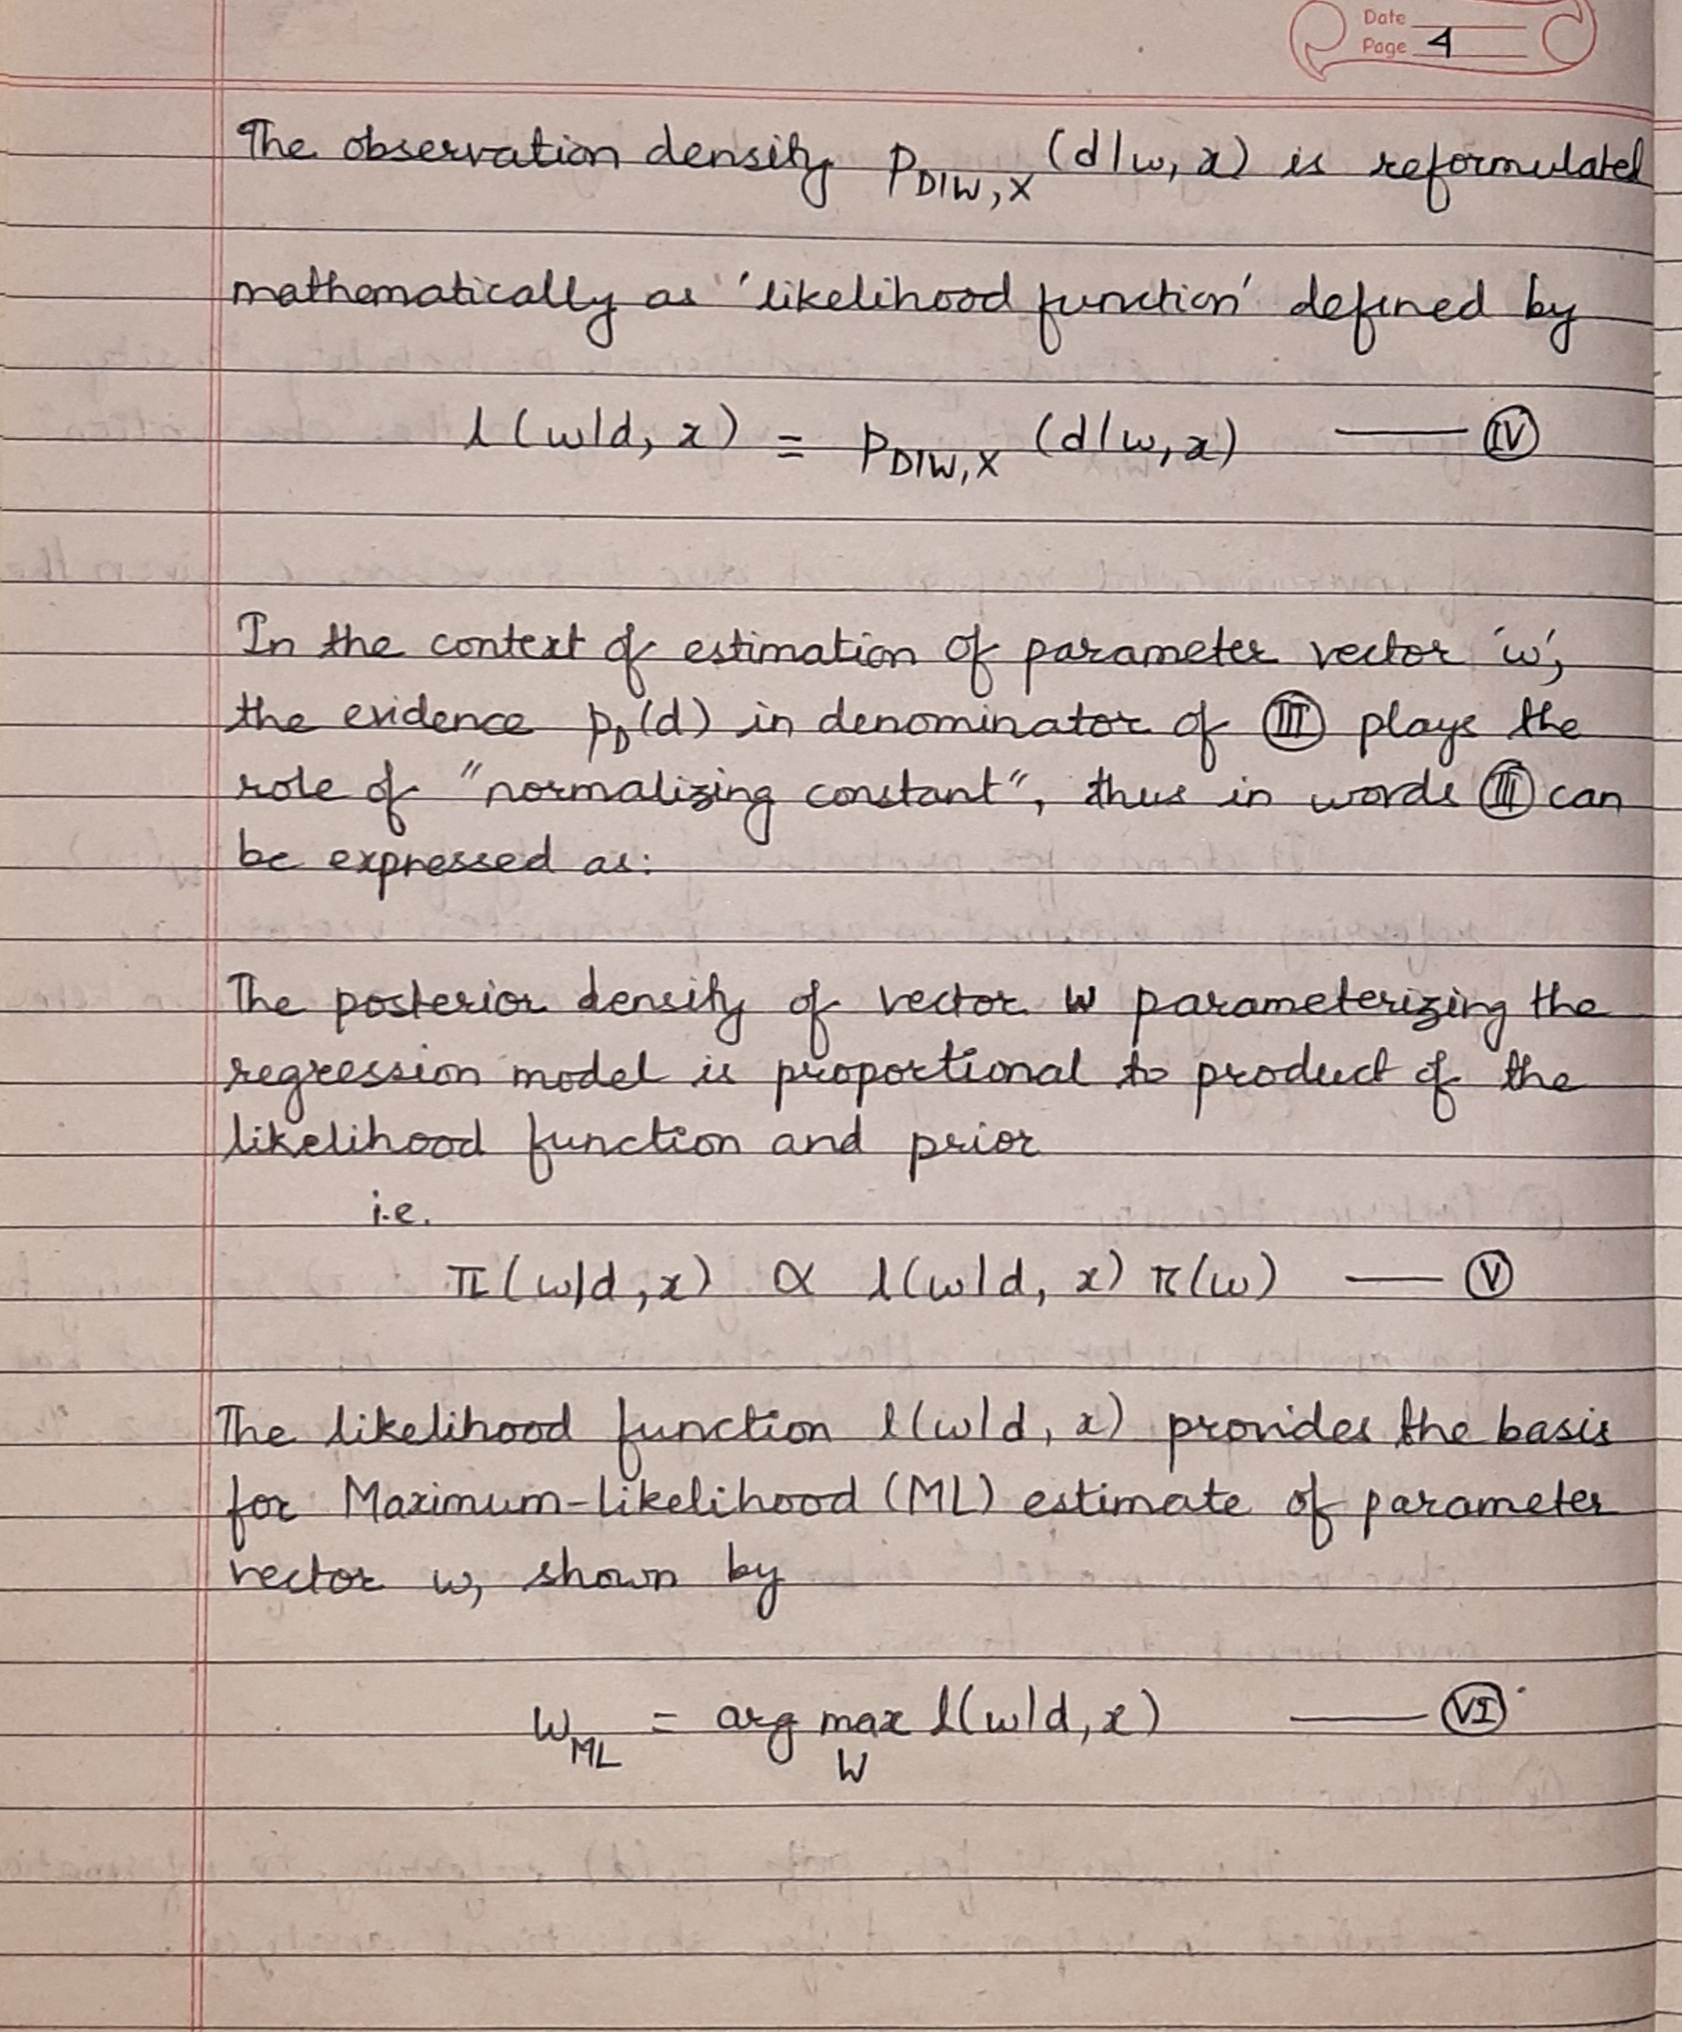 Date
Page 4
The observation density p_{D|W,X}(d|w,x) is reformulated
mathematically as 'likelihood function' defined by
l(w|d,x) = p_{D|W,X}(d|w,x) —— IV
In the context of estimation of parameter vector 'w',
the evidence p_D(d) in denominator of III plays the
role of "normalizing constant", thus in words III can
be expressed as:
The posterior density of vector W parameterizing the
regression model is proportional to product of the
likelihood function and prior
i.e.
π(w|d,x) ∝ l(w|d,x) π(w) —— V
The likelihood function l(w|d,x) provides the basis
for Maximum-likelihood (ML) estimate of parameter
vector w, shown by
w_{ML} = arg max l(w|d,x) —— VI
W